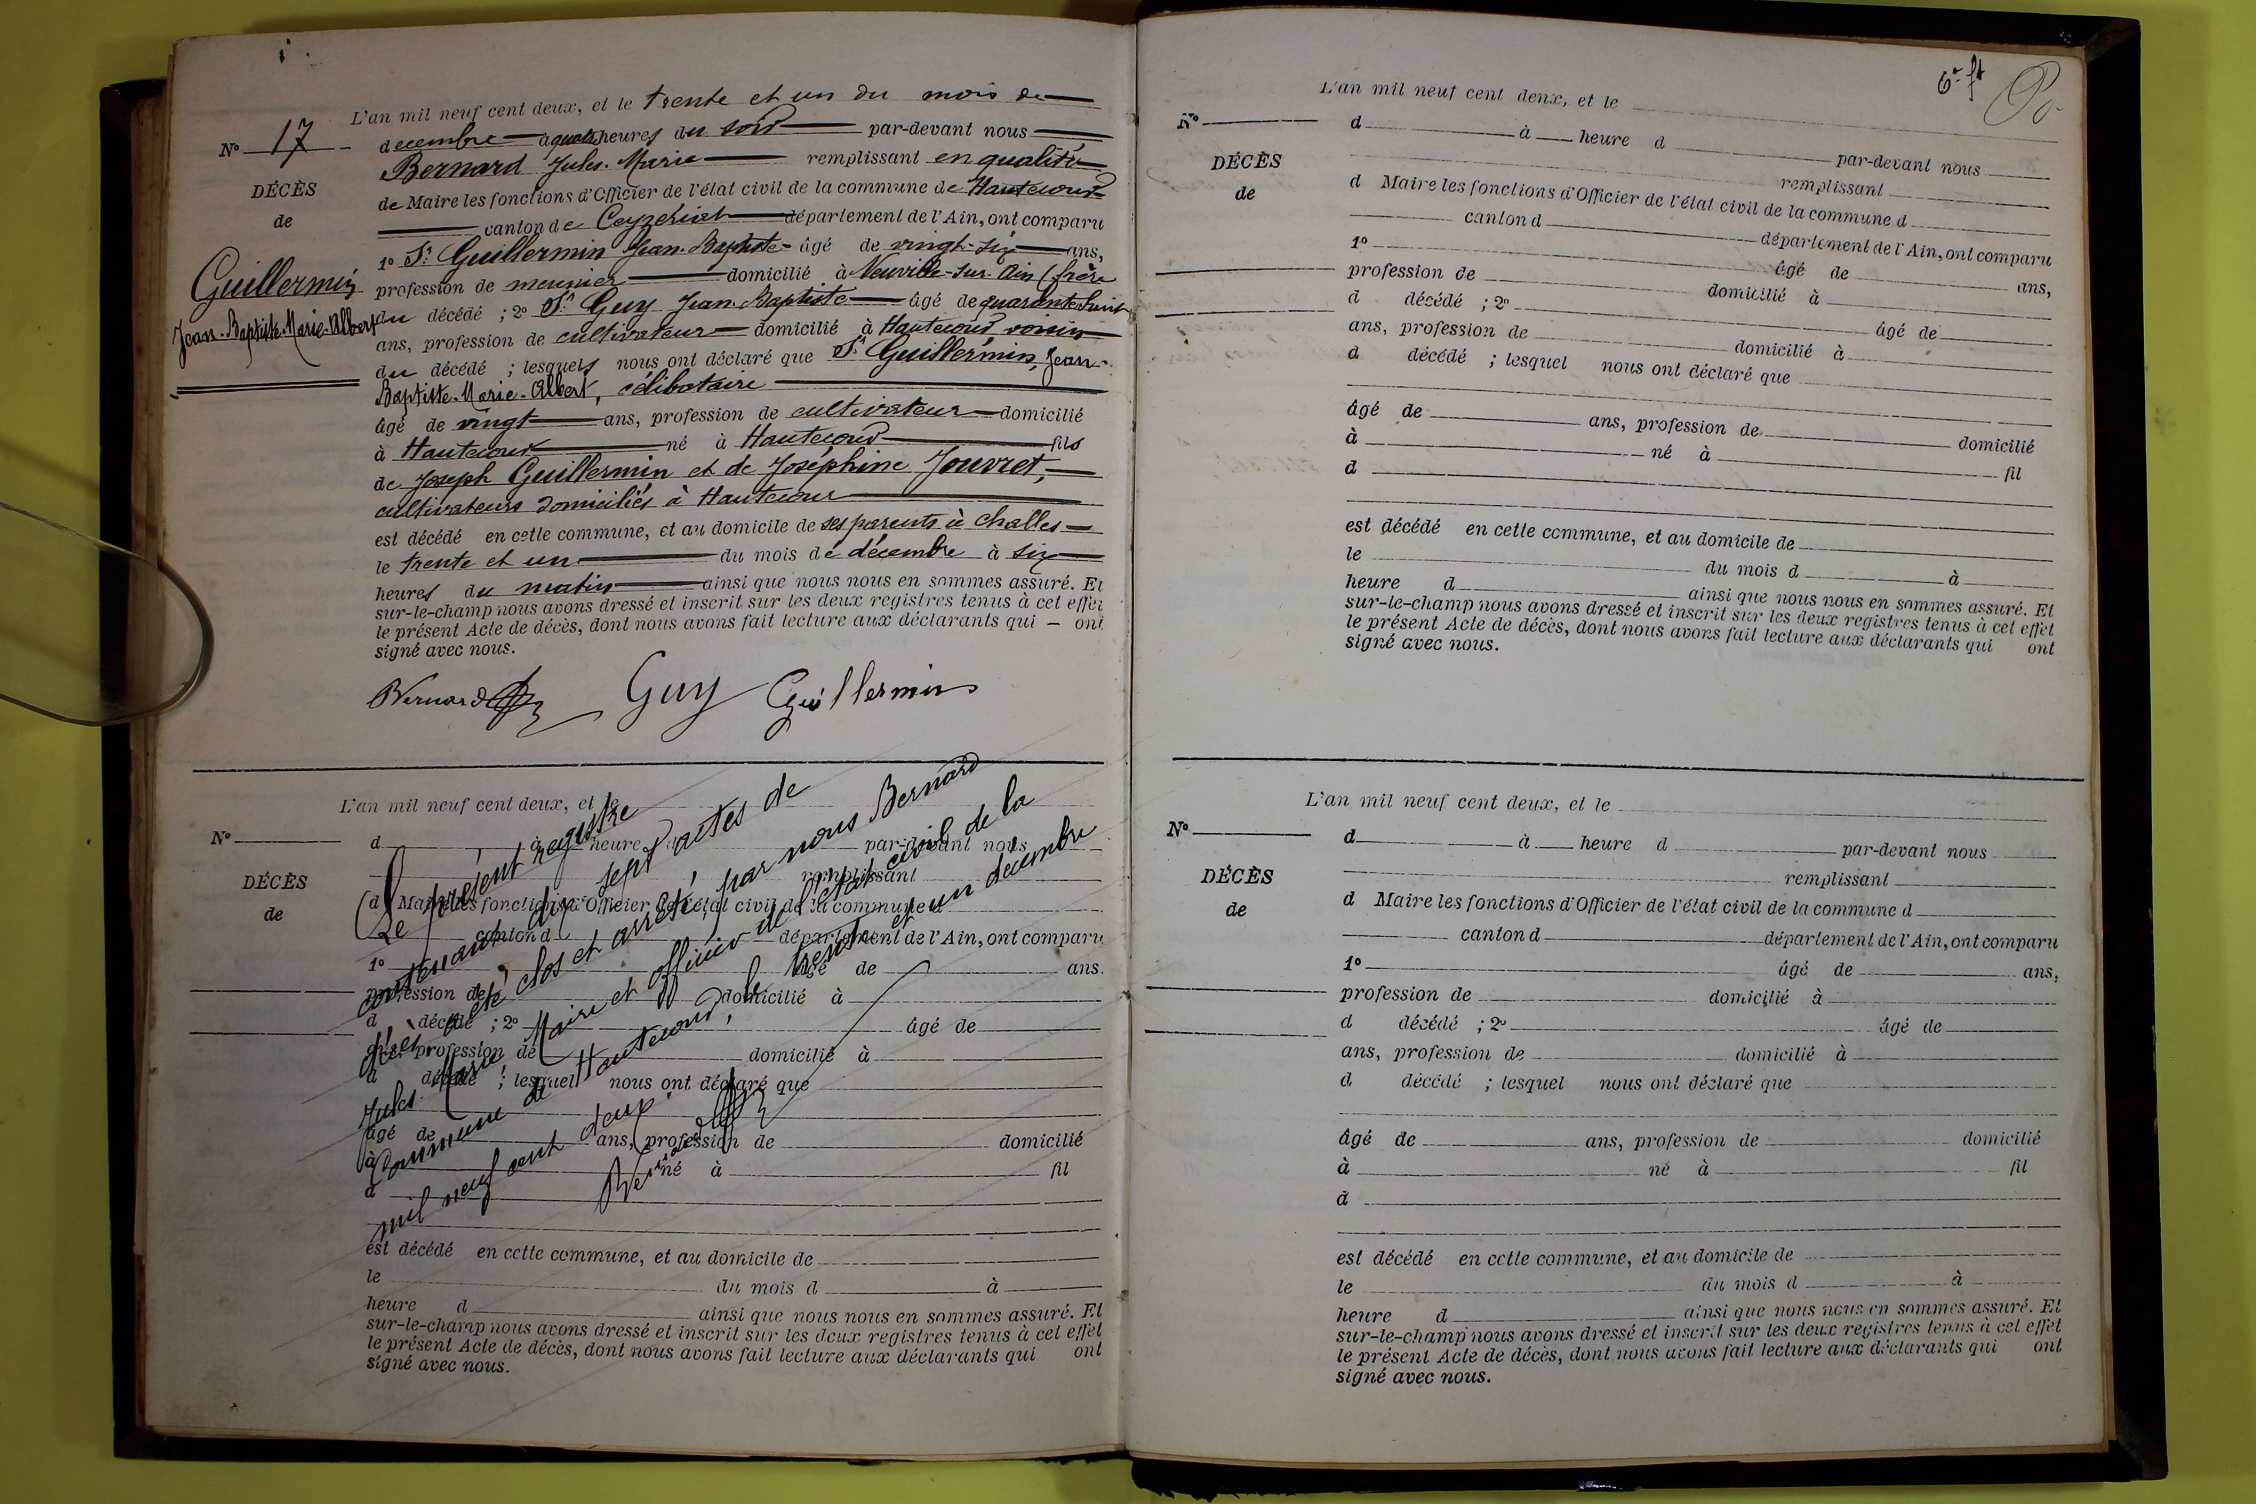 L'an mil neuf cent deux, et le trente et un du mois de
N° 17
decembre à quatre heures du soir par-devant nous
Bernard Jules-Marie remplissant en qualité
DÉCÈS
de Maire les fonctions d'Officier de l'état civil de la commune de Hautecour
de
canton de Ceyzériat département de l'Ain, ont comparu
1° Sr Guillermin Jean-Baptiste âgé de vingt-six ans,
Guillermin
Jean-Baptiste-Marie-Albert
profession de meunier domicilié à Neuville-sur-Ain (frère
du décédé ; 2° Sr Guy Jean-Baptiste âgé de quarante-huit
ans, profession de cultivateur domicilié à Hautecour voisin
du décédé ; lesquels nous ont déclaré que Sr Guillermin, Jean-
Baptiste-Marie-Albert, célibataire
âgé de vingt ans, profession de cultivateur domicilié
à Hautecour né à Hautecour fils
de Joseph Guillermin et de Joséphine Jouvret,
cultivateurs domiciliés à Hautecour
est décédé en cette commune, et au domicile de ses parents à Challes
le trente et un du mois de décembre à six
heures du matin ainsi que nous nous en sommes assuré. Et
sur-le-champ nous avons dressé et inscrit sur les deux registres tenus à cet effet
le présent Acte de décès, dont nous avons fait lecture aux déclarants qui – ont
signé avec nous.
Bernard Guy Guillermin
L'an mil neuf cent deux, et le
N°
d à heure d par-devant nous
remplissant
DÉCÈS
de
d Maire les fonctions d'Officier de l'état civil de la commune d
canton d département de l'Ain, ont comparu
1° âgé de ans.
profession de domicilié à
d décédé ; 2° âgé de
ans, profession de domicilié à
d décédé ; lesquel nous ont déclaré que
âgé de ans, profession de domicilié
à né à fil
d
est décédé en cette commune, et au domicile de
le du mois d à
heure d ainsi que nous nous en sommes assuré. Et
sur-le-champ nous avons dressé et inscrit sur les deux registres tenus à cet effet
le présent Acte de décès, dont nous avons fait lecture aux déclarants qui ont
signé avec nous.
Le présent registre
contenant dix sept actes de
décès a été clos et arrêté par nous Bernard
Jules-Marie Maire et officier de l'état civil de la
Commune de Hautecour, le trente et un décembre
mil neuf cent deux.
Bernard
6e ft
L'an mil neuf cent deux, et le
N°
d à heure d par-devant nous
remplissant
DÉCÈS
de
d Maire les fonctions d'Officier de l'état civil de la commune d
canton d département de l'Ain, ont comparu
1° âgé de ans,
profession de domicilié à
d décédé ; 2° âgé de
ans, profession de domicilié à
d décédé ; lesquel nous ont déclaré que
âgé de ans, profession de domicilié
à né à fil
d
est décédé en cette commune, et au domicile de
le du mois d à
heure d ainsi que nous nous en sommes assuré. Et
sur-le-champ nous avons dressé et inscrit sur les deux registres tenus à cet effet
le présent Acte de décès, dont nous avons fait lecture aux déclarants qui ont
signé avec nous.
L'an mil neuf cent deux, et le
N°
d à heure d par-devant nous
remplissant
DÉCÈS
de
d Maire les fonctions d'Officier de l'état civil de la commune d
canton d département de l'Ain, ont comparu
1° âgé de ans,
profession de domicilié à
d décédé ; 2° âgé de
ans, profession de domicilié à
d décédé ; lesquel nous ont déclaré que
âgé de ans, profession de domicilié
à né à fil
d
est décédé en cette commune, et au domicile de
le du mois d à
heure d ainsi que nous nous en sommes assuré. Et
sur-le-champ nous avons dressé et inscrit sur les deux registres tenus à cet effet
le présent Acte de décès, dont nous avons fait lecture aux déclarants qui ont
signé avec nous.